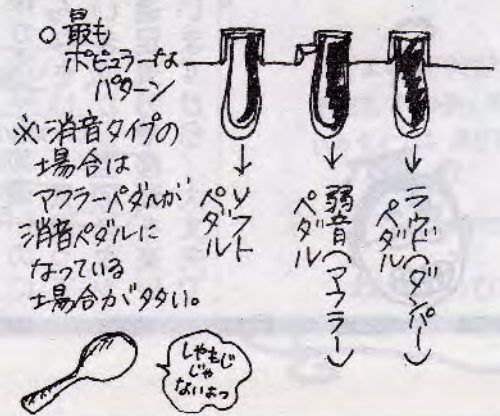 ○最も
ポピュラーなな
パターン
※消音タイプの
場合は
マフラーペダルが
消音ペダルに
なっている
場合が多い。
ソフト
ペダル
弱音(マフラー)
ペダル
ラウド(ダンパー)
ペダル
しゃもじ
じゃ
ないよっ